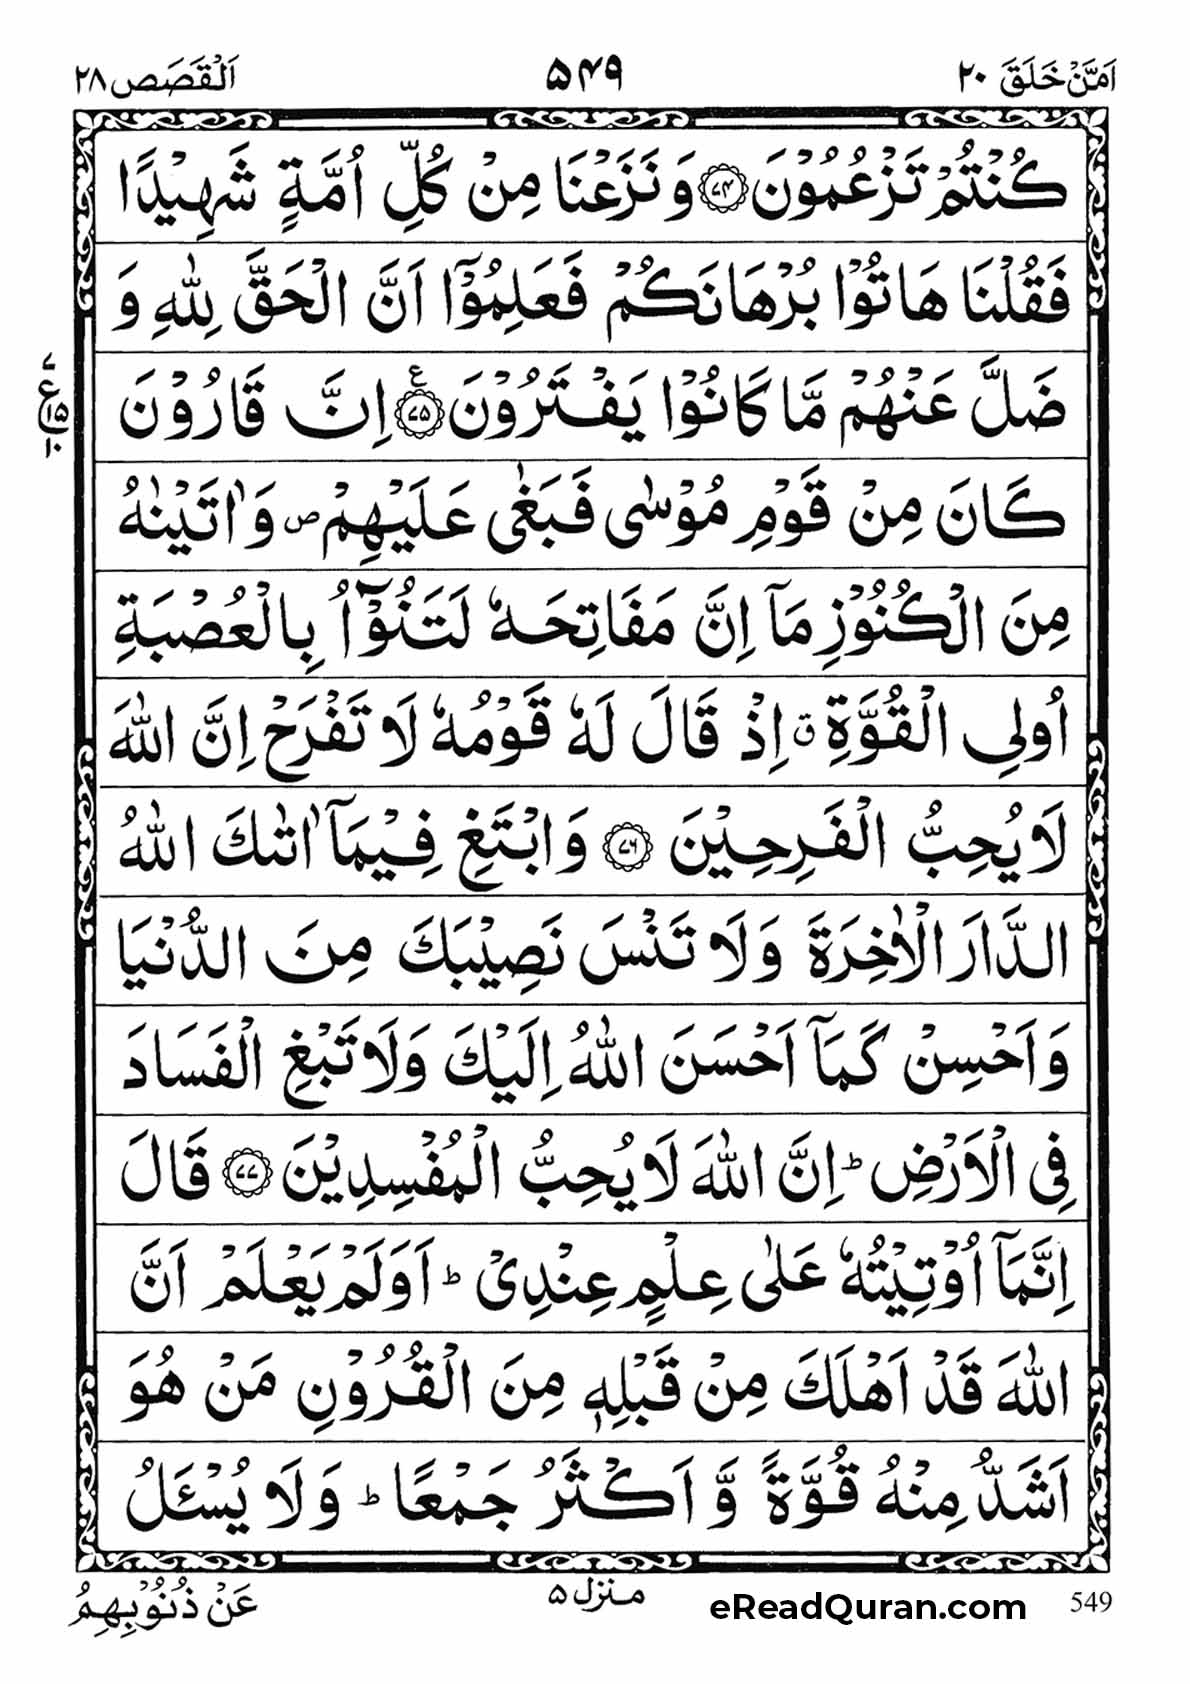 اَمَّنۡ خَلَقَ ۲۰
۵۴۹
اَلۡقَصَص ۲۸
كُنۡتُمۡ تَزۡعُمُوۡنَ ﴿۷۴﴾ وَ نَزَعۡنَا مِنۡ كُلِّ اُمَّةٍ شَهِيۡدًا
فَقُلۡنَا هَاتُوۡا بُرۡهَانَكُمۡ فَعَلِمُوۡۤا اَنَّ الۡحَقَّ لِلّٰهِ وَ
ضَلَّ عَنۡهُمۡ مَّا كَانُوۡا يَفۡتَرُوۡنَ ﴿۷۵﴾ ع اِنَّ قَارُوۡنَ
۷
ع
۱۵
۱۰
كَانَ مِنۡ قَوۡمِ مُوۡسٰى فَبَغٰى عَلَيۡهِمۡ ص وَاٰتَيۡنٰهُ
مِنَ الۡكُنُوۡزِ مَاۤ اِنَّ مَفَاتِحَهٗ لَتَنُوۡٓاُ بِالۡعُصۡبَةِ
اُولِى الۡقُوَّةِ ق اِذۡ قَالَ لَهٗ قَوۡمُهٗ لَا تَفۡرَحۡ اِنَّ اللّٰهَ
لَا يُحِبُّ الۡفَرِحِيۡنَ ﴿۷۶﴾ وَابۡتَغِ فِيۡمَاۤ اٰتٰٮكَ اللّٰهُ
الدَّارَ الۡاٰخِرَةَ وَلَا تَنۡسَ نَصِيۡبَكَ مِنَ الدُّنۡيَا
وَاَحۡسِنۡ كَمَاۤ اَحۡسَنَ اللّٰهُ اِلَيۡكَ وَلَا تَبۡغِ الۡفَسَادَ
فِى الۡاَرۡضِ ؕ اِنَّ اللّٰهَ لَا يُحِبُّ الۡمُفۡسِدِيۡنَ ﴿۷۷﴾ قَالَ
اِنَّمَاۤ اُوۡتِيۡتُهٗ عَلٰى عِلۡمٍ عِنۡدِىۡ ؕ اَوَلَمۡ يَعۡلَمۡ اَنَّ
اللّٰهَ قَدۡ اَهۡلَكَ مِنۡ قَبۡلِهٖ مِنَ الۡقُرُوۡنِ مَنۡ هُوَ
اَشَدُّ مِنۡهُ قُوَّةً وَّ اَكۡثَرُ جَمۡعًا ؕ وَلَا يُسۡـَٔلُ
عَنۡ ذُنُوۡبِهِمُ
منزل ۵
eReadQuran.com
549